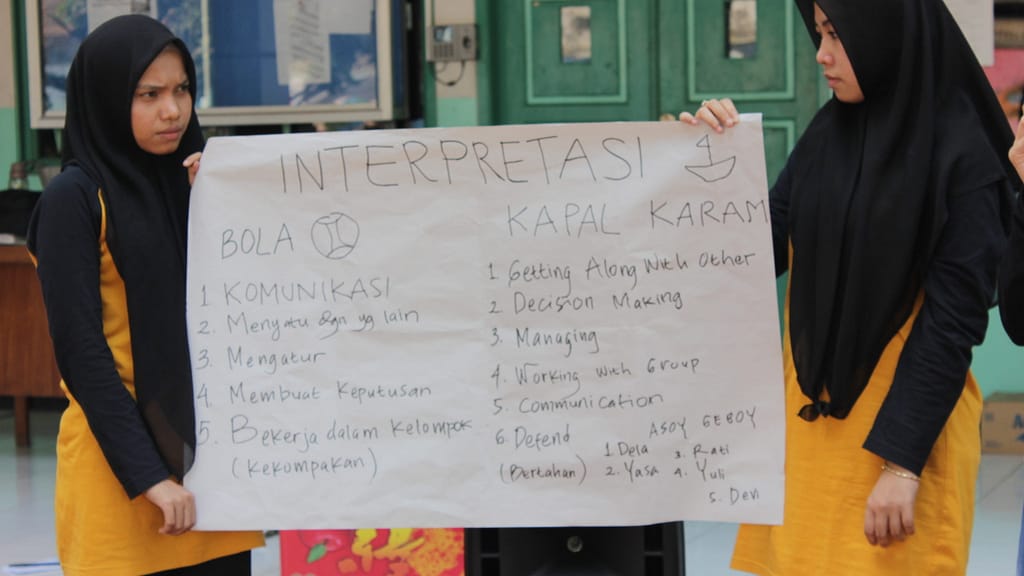 INTERPRETASI
BOLA
1 KOMUNIKASI
2. Menyatu dgn yg lain
3. Mengatur
4. Membuat Keputusan
5. Bekerja dalam Kelompok
(Kekompakan)
KAPAL KARAM
1 Getting Along With Other
2 Decision Making
3. Managing
4. Working with Group
5. Communication
6. Defend
(Bertahan)
ASOY GEBOY
1 Dela 3. Rati
2. Yasa 4. Yuli
5. Devi